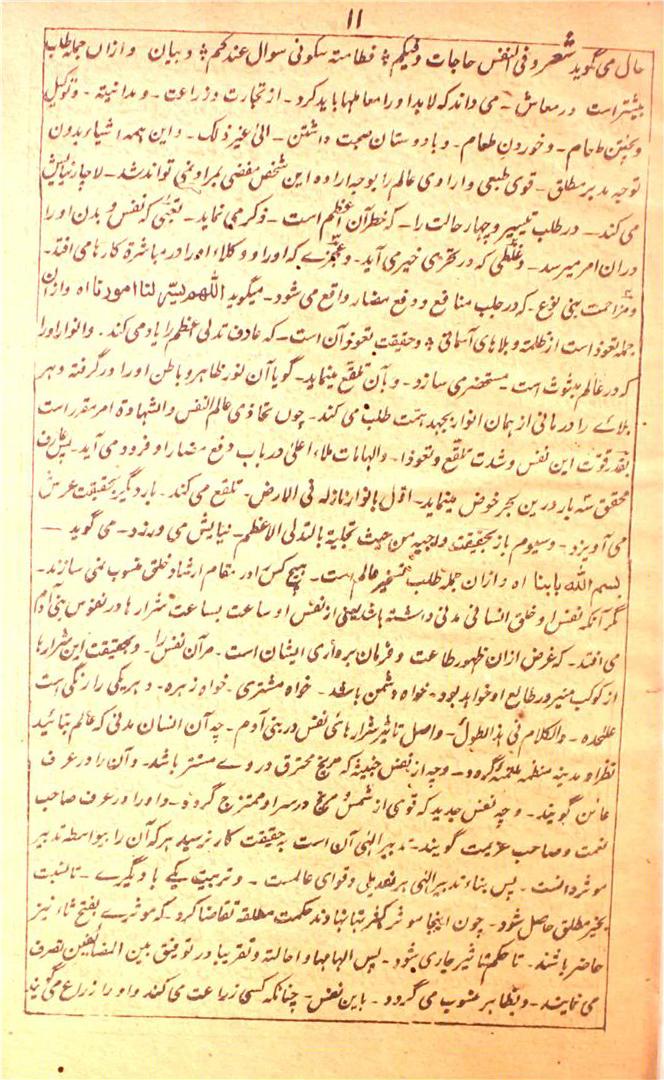 ۱۱
حال می گوید شعر وفی النفس حاجات وفیکم ؞ فطامته سکونی سوال عندکم ؞ و بیان و ازاں جمله طلب
بیشتر است در معاش۔ می داند که لابد اورا معاملها باید کرد۔ از تجارت و زراعت۔ و مدانیته۔ و توکیل
و پختن طعام۔ و خوردن طعام۔ و با دوستان صحبت داشتن۔ الی غیر ذلک۔ و این همه اشیاء بدون
توجه مدبر مطلق۔ قوی طبعی و ارادی عالم را بوجه اراده این شخص مفضی بمراد نمی تواند شد۔ لاچار نیایش
می کند۔ در طلب تیسیر و چهار حالت را۔ که خطر آن اعظم است۔ ذکر می نماید۔ تعبی که نفس و بدن او را
دران امر میرسد۔ و غلطی که در تحری خیر می آید۔ و عجزے که او را و وکلاء او را در مباشرة کارها می افتد۔
و مزاحمت بنی نوع۔ که در جلب منافع و دفع مضار واقع می شود۔ میگوید اللهم یسر لنا امورنا اه و ازان
جمله تعوذ است از ظلمة و بلاهای آسمانی ؞ و حقیقت تعوذ آن است۔ که عارف تدلی اعظم را یاد می کند۔ و انوار او را
که در عالم مبثوث است۔ مستحضر می سازد۔ و بآن تلقع مینماید۔ گویا آن نور ظاهر و باطن او را در گرفته و هر
بلائے را درمانی از همان انوار بجهد همت طلب می کند۔ چوں تحاذی عالم النفس والشهادة امر مقرر است
بقدر قوت این نفس و شدت تلقع و تعوذ او۔ و الهامات ملاء اعلی در باب دفع مضار او فرود می آید۔ پس عارف
محقق سه بار درین بحر خوض مینماید۔ اول بانوار نازله فی الارض۔ تلقع می کند۔ بار دیگر بحقیقت عرش
می آویزد۔ و سیوم باز بحقیقت واجبیه من حیث تجلیة بالتدلی الاعظم۔ نیایش می ورزد۔ می گوید —
بسم الله بابنا اه و ازان جمله طلب تسخیر عالم است۔ هیچ کس را در مقام ارشاد خلق منسوب نمی سازند۔
مگر آنکه نفس او خلق انسانی مدنی داشته باشد یعنی از نفس او ساعت بساعت شرارها در نفوس بنی آدم
می افتد۔ که غرض ازان ظهور طاعت و فرمان برداری ایشان است۔ مر آن نفس را۔ و بحقیقت این شرارها
از کوکب منیر در طالع او خواهد بود۔ خواه شمس باشد۔ خواه مشتری۔ خواه زهره۔ و هر یکی را رنگی است
علیحده۔ والکلام فی هذا لطول۔ و اصل تاثیر شرارهائی نفس در بنی آدم۔ چه آن انسان مدنی که عالم بتائید
نظر او مدینه منظمه ملتئمه گردد۔ و چه از نفس خبیثه که مریخ محترق در وے مستتر باشد۔ و آن را در عرف
عائن گویند۔ و چه نفس جدید که قوی از شمس و مریخ در سر او ممتزج گردد۔ و او را در عرف صاحب
همت و صاحب عزیمت گویند۔ تدبیر الهی آن است بحقیقت کار نرسید هر که آن را بواسطه تدبیر
موثر دانست۔ پس بناء تدبیر الهی بر تعدیلی و قوای عالمست۔ و تربیت یکے با دیگرے۔ تا نسبت
بخیر مطلق حاصل شود۔ چون اینجا موثر حکمت مطلقه تقاضا کرد۔ که موثرے بفتح ثاء نیز
حاضر باشند۔ تا حکم تاثیر جاری شود۔ پس الهامها و احالته و تقریبا در توفیق بین المضائفین تصرف
می نمایند۔ و بظاهر منسوب می گردد۔ باین نفس۔ چنانکه کسی زراعت می کند و او را زراع می گویند